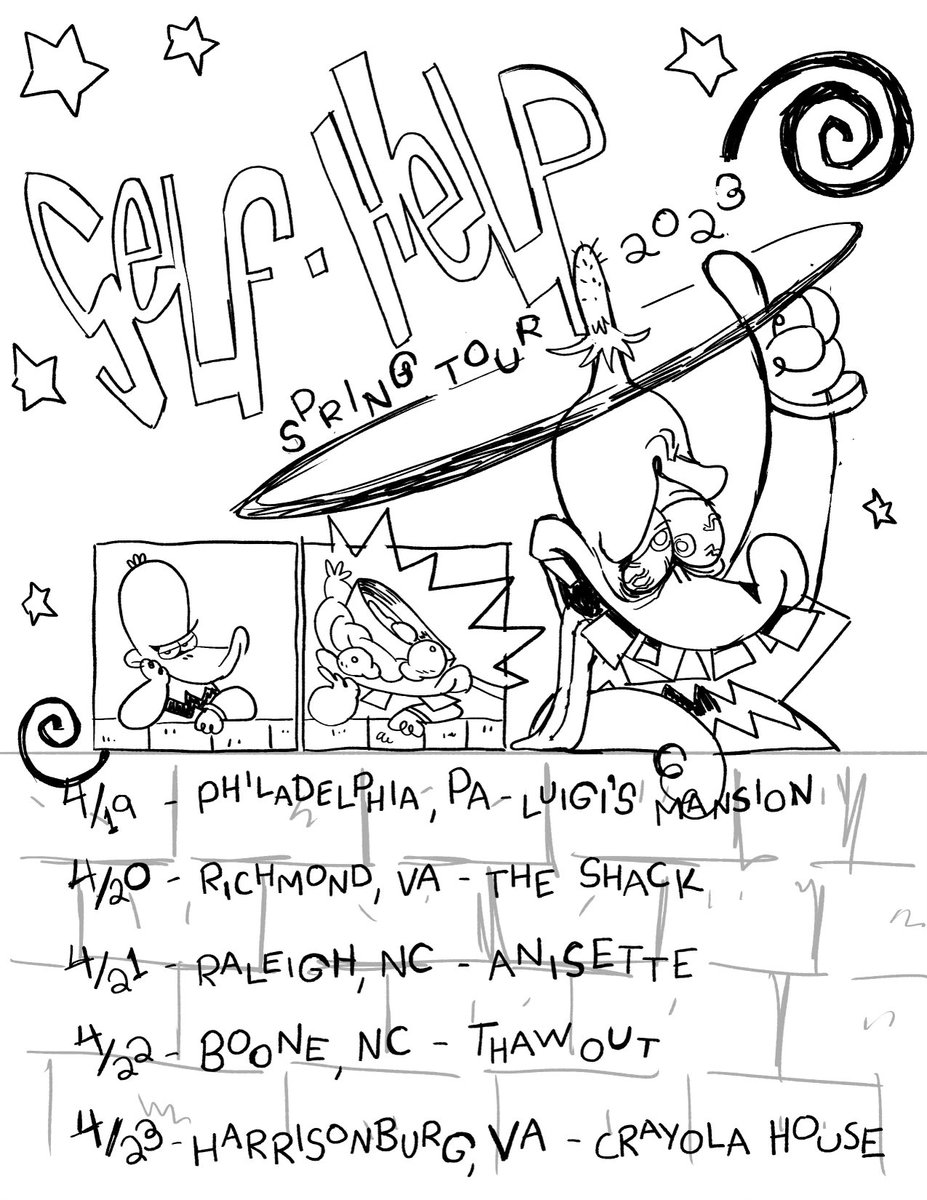 SELF-HELP
SPRING TOUR 2023
4/19 - PHILADELPHIA, PA - LUIGI'S MANSION
4/20 - RICHMOND, VA - THE SHACK
4/21 - RALEIGH, NC - ANISETTE
4/22 - BOONE, NC - THAW OUT
4/23 - HARRISONBURG, VA - CRAYOLA HOUSE